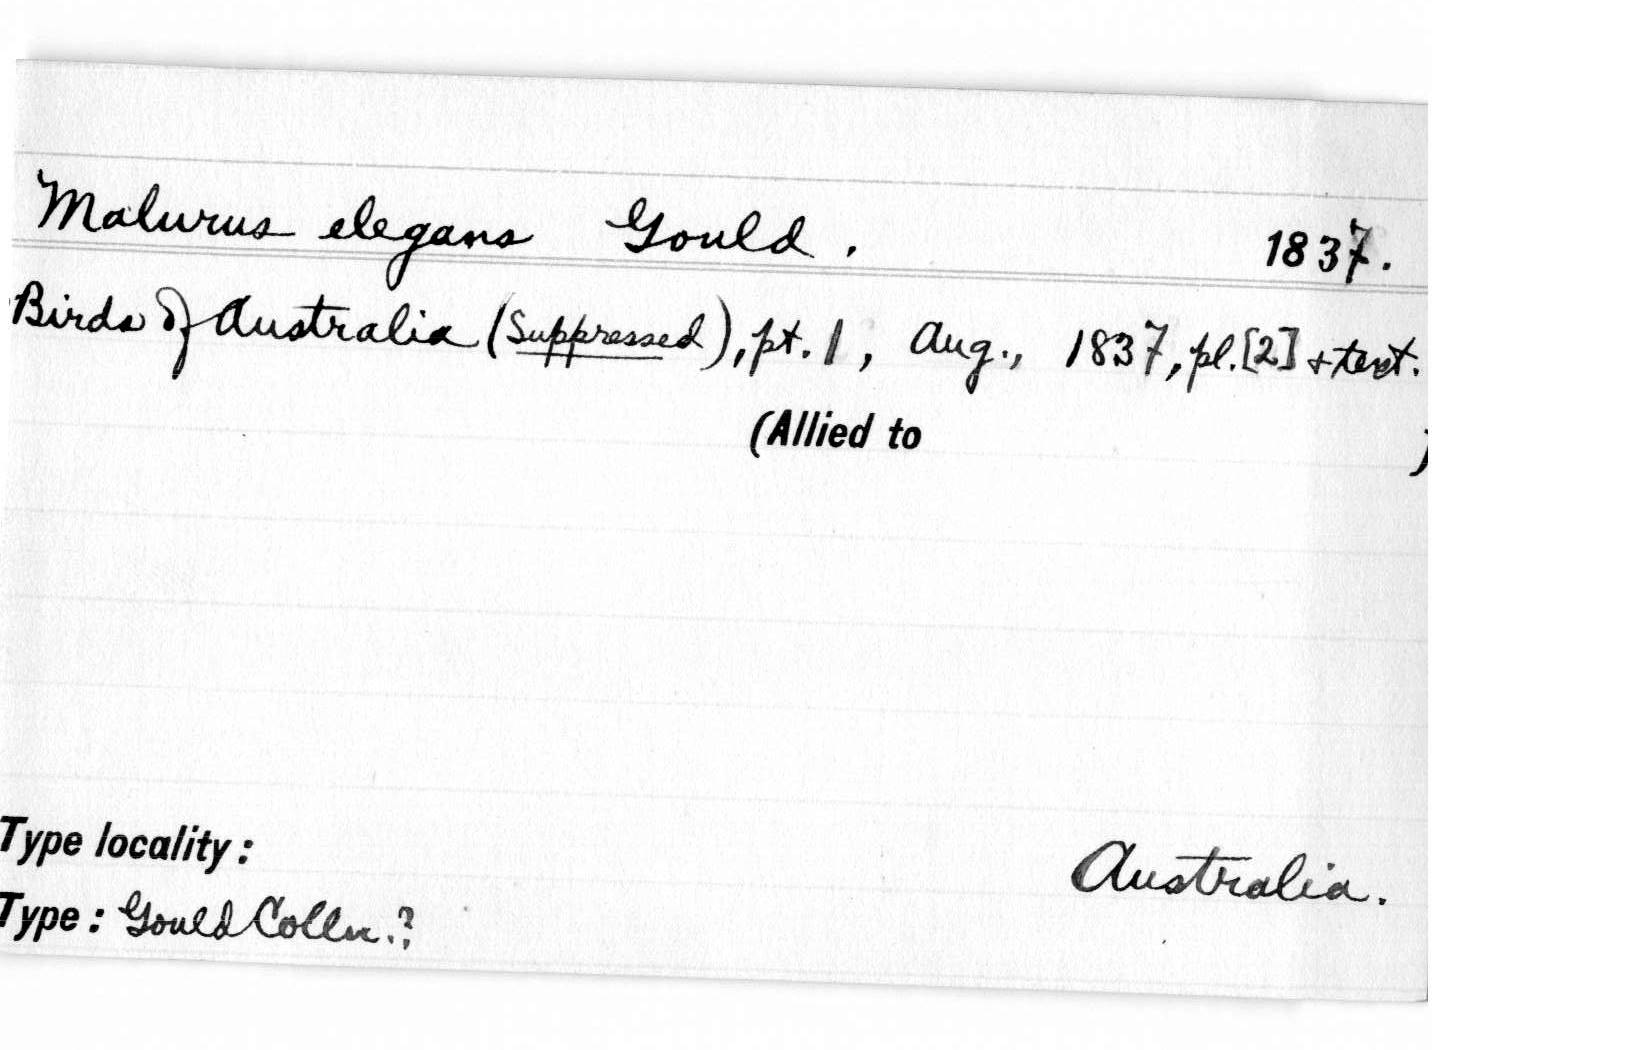 Malurus elegans Gould. 1837.
Birds of Australia (Suppressed), pt. 1, Aug., 1837, pl. [2] + text.
(Allied to )
Type locality: Australia.
Type: Gould Colln.?